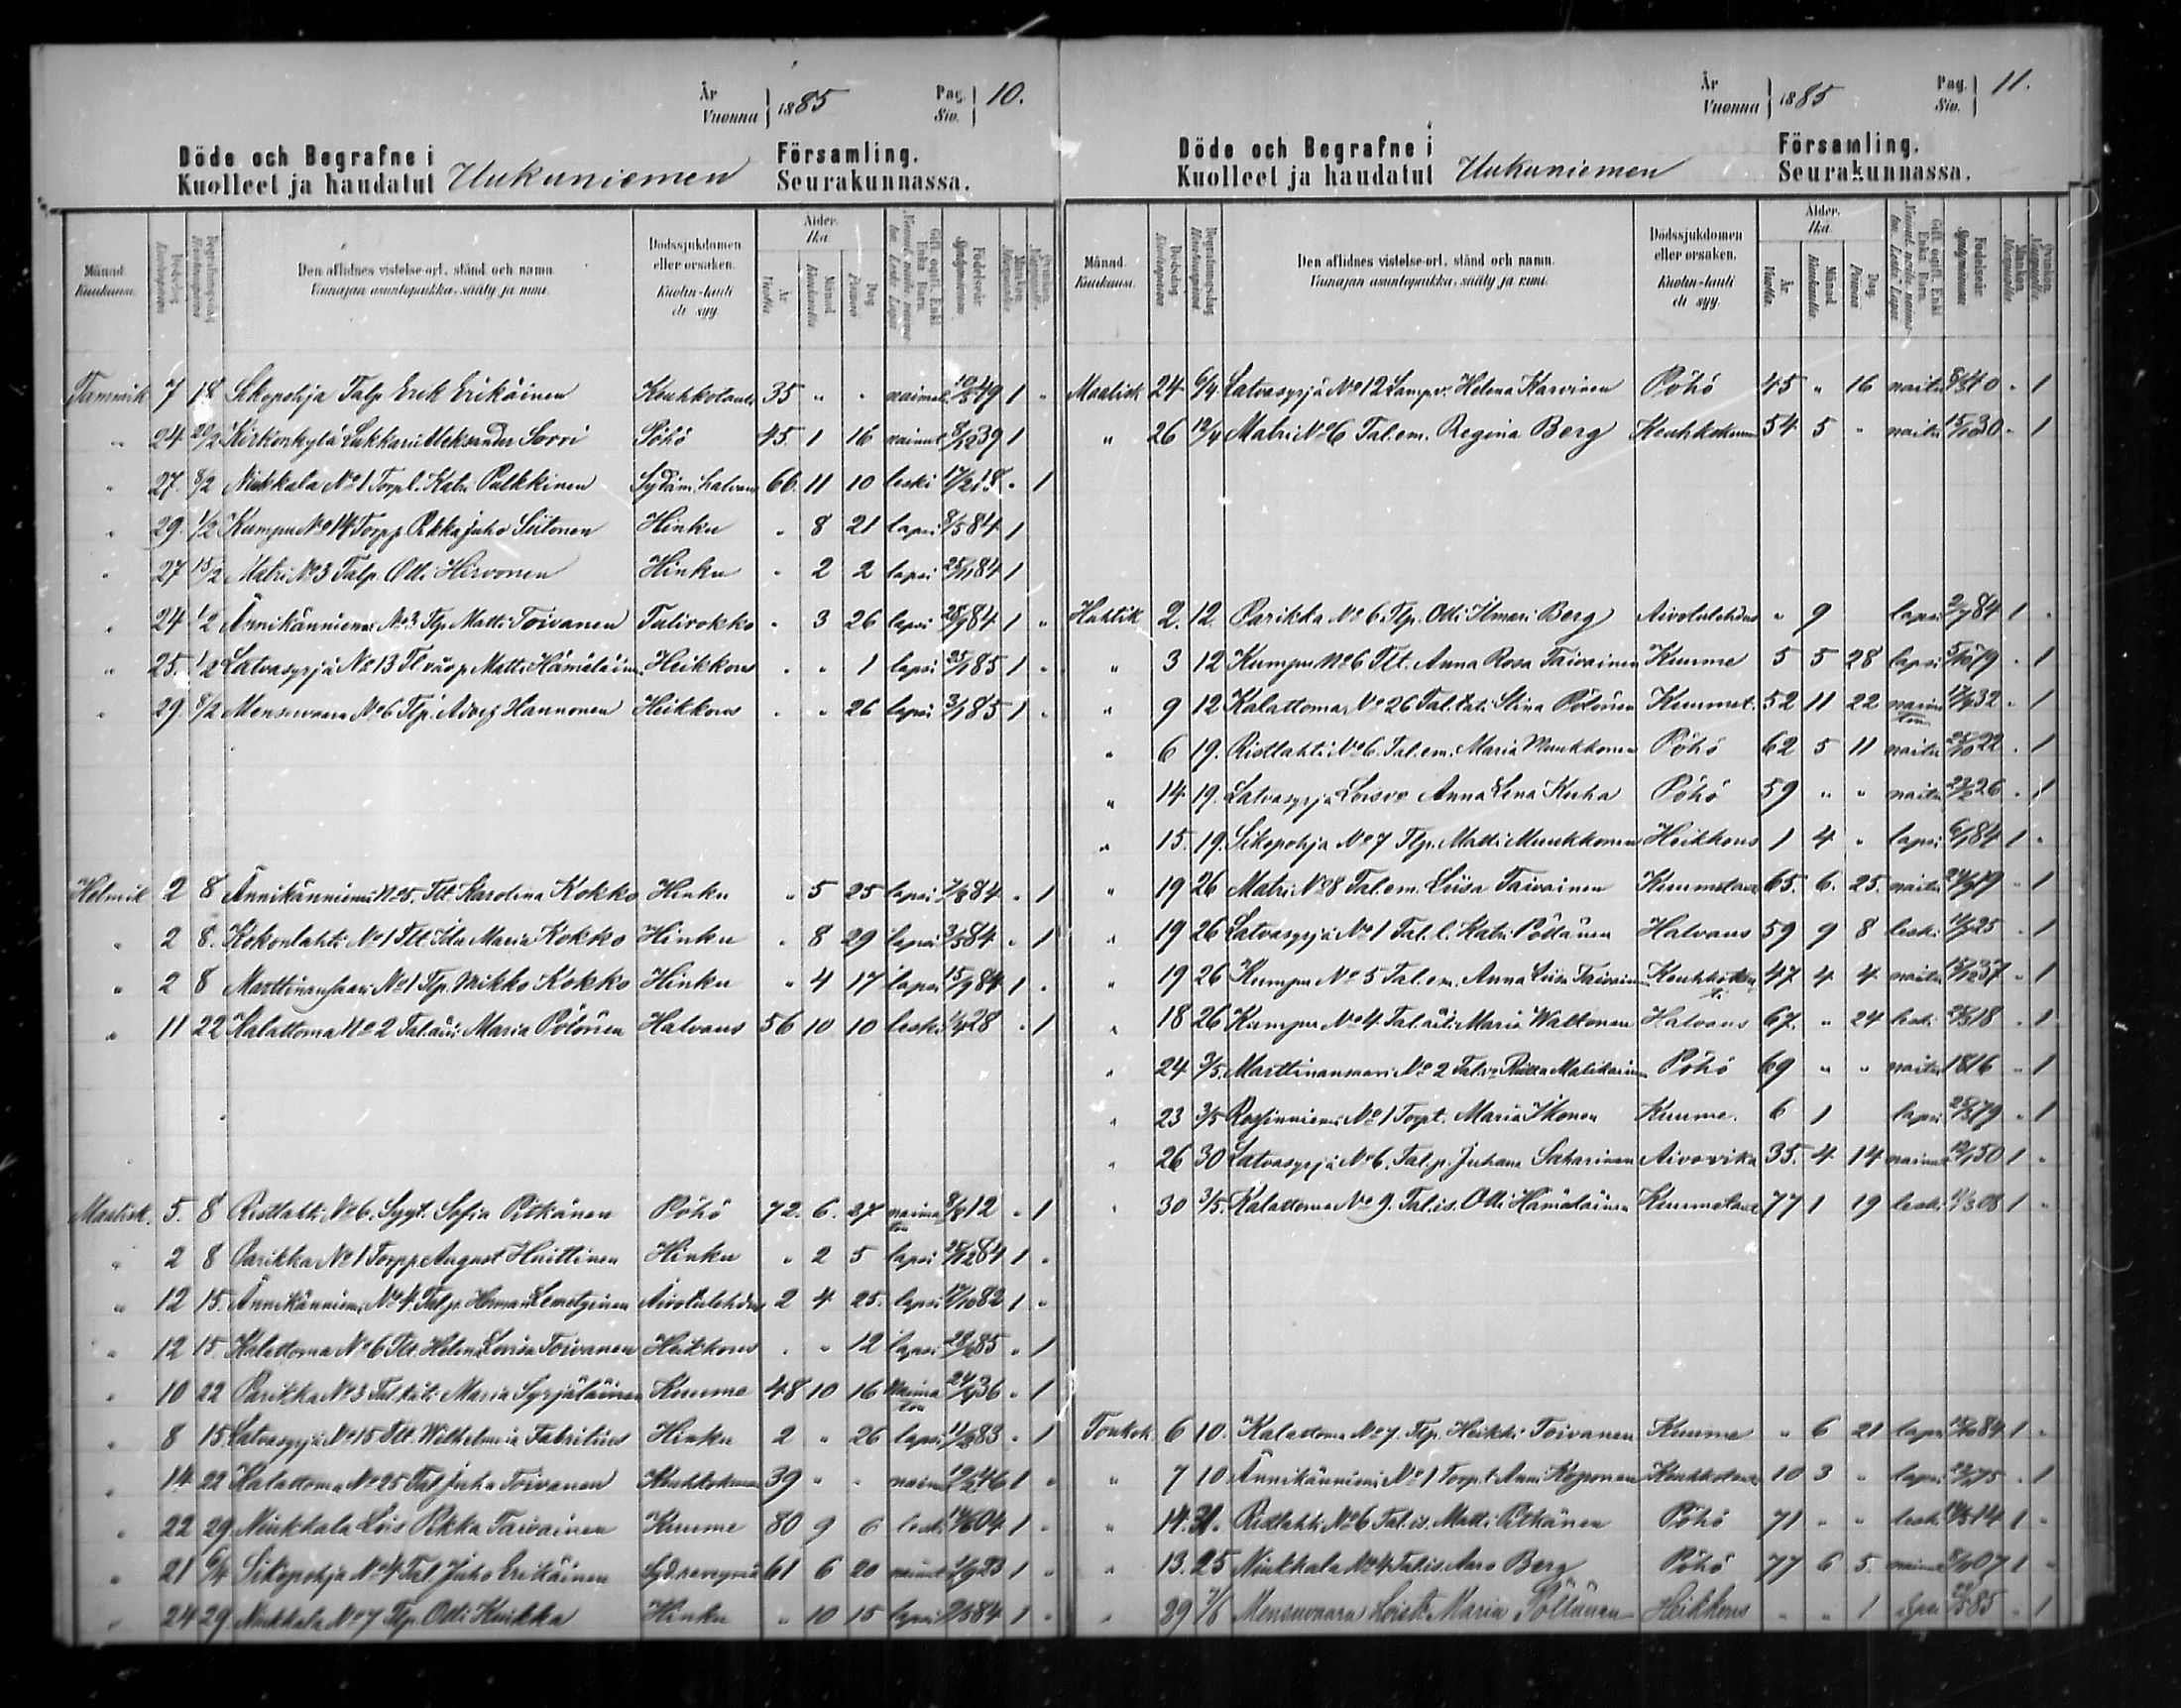 År
Vuonna } 1885
Pag.
Siv. } 10.
Döde och Begrafne i
Kuolleet ja haudatut Uukuniemen
Församling.
Seurakunnassa.
Månad. Kuukausi.
Dödsdag Kuolinpäivä
Begrafningsdag
Den aflidnes vistelse-ort, stånd och namn.
Vainajan asuntopaikka, sääty ja nimi.
Dödssjukdomen eller orsaken.
Kuolin-tauti eli syy
Ålder. Ikä
År Vuotta
Månad Kuukautta
Dag. Päivää
Födelseår
Mankön. Miespuolia
Tammik 7 18 Sikopohja Talp Erik Erikäinen Keuhkotauti 35 " " nainut 49 1 "
" 24 20/2 Kirkonkylä Lukkari Aleksander Sorri Pöhö 45. 1 16 nainut 8/12 39 1
" 27. 8/2 Niukkala No 1 Torpl. Katri Pulkkinen Sydäm. halvaus 66. 11 10 leski 17/2 18 " 1
" 29. 1/2 Kumpu No 14 Torpp Pekka Juho Siitonen Hinku " 8 21 lapsi 8/5 84 1
" 27 15/2 Matri No 3 Talp. Otti Hirvonen Hinku " 2 2 lapsi 25/11 84 1
" 24 1/2 Annikänniemi No 3 Tlp. Matti Toivanen Tulirokko " 3 26 lapsi 28/9 84 1 "
" 25. 1/2 Latvasyrjä No 13 Matti Hämäläinen Heikkous " " 1 lapsi 25/1 85 1 "
" 29 8/2 Mensuvaara No 6 Tlp. Hannonen Heikkous " " 26 lapsi 3/1 85 1 "
Helmik 2 8 Annikänniemi No 5. Tlt. Karolina Kokko Hinku " 5 25 lapsi 7/8 84 " 1
" 2 8. Kokonlahti No 1 Tlt Ida Maria Kokko Hinku " 8 29 lapsi 3/5 84 " 1
" 2 8 Marttinansaari No 1 Tlp. Mikko Kokko Hinku " 4 17 lapsi 15/9 84 1 "
" 11 22 Kalattoma No 2 Tal. äiti Maria Pölönen Halvaus 56 10 10 leski 1/4 28 " 1
Maalisk. 5. 8 Ristlahti No 6. Sofia Pitkänen Pöhö 72. 6. 27 naimaton 8/8 12 " 1
" 2 8 Parikka No 1 Torpp August Huittinen Hinku " 2 5 lapsi 25/12 84 1 "
" 12 15. Annikänniemi No 4. Talp. Herman Lemetyinen Aivotulehdus 2 4 25. lapsi 17/10 82 1 "
" 12 15. Kalattoma No 6 Tlt. Helena Lovisa Toivanen Heikkous " " 12 lapsi 28/2 85 " 1
" 10 22 Parikka No 3 Maria Syrjäläinen Kuume 48 10 16 naimaton 24/4 36 " 1
" 8 15. Latvasyrjä No 15 Tlt. Wilhelmiia Fabritius Hinku 2 " 26 lapsi 11/2 83 " 1
" 14 22 Kalattoma No 25 Tal Juha Toivanen Keuhkokuume 39 " " nainut 46 1 "
" 22 29 Niukkala Lois Pekka Taivainen Kuume 80 9 6 leski 04 1 "
" 21 6/4 Sikopohja No 4 Tal. Juho Erikäinen 61 6 20 nainut 1/9 23 1 "
" 24 29. Niukkala No 7 Tlp. Otti Kuikka Hinku " 10 15 lapsi 84 1 "
År
Vuonna } 1885
Pag.
Siv. } 11.
Döde och Begrafne i
Kuolleet ja haudatut Uukuniemen
Församling.
Seurakunnassa.
Månad. Kuukausi.
Dödsdag Kuolinpäivä
Begrafningsdag
Den aflidnes vistelse-ort, stånd och namn.
Vainajan asuntopaikka, sääty ja nimi.
Dödssjukdomen eller orsaken.
Kuolin-tauti eli syy.
Ålder. Ikä.
År. Vuotta.
Månad. Kuukautta.
Dag. Päivää
Födelseår.
Mankön. Miespuolia
Maalisk 24 6/4 Latvasyrjä No 12 Lampv. Helena Karvinen Pöhö 45 " 16 naitu 8/3 40 " 1
" 26 12/4 Matri No 6 Tal. em. Regina Berg Keuhkokuume 54 5 " naitu 15/10 30 " 1
Huhtik 2. 12 Parikka No 6 Tlp. Otti Ilmari Berg Aivotulehdus " 9 lapsi 2/7 84 1 "
" 3 12 Kumpu No 6 Tlt. Anna Rosa Taivainen Kuume 5 5 28 lapsi 5/10 79 " 1
" 9 12 Kalattoma No 26 Stina Pölönen Kuumet. 52 11 22 naimaton 17/4 32 " 1
" 6 19. Ristlahti No 6. Tal. em. Maria Muukkonen Pöhö 62 5 11 naitu 25/10 22 " 1
" 14 19. Latvasyrjä Loisv. Anna Lena Kuha Pöhö 59 " " naitu 26 " 1
" 15. 19. Sikopohja No 7 Tlp. Matti Muukkonen Heikkous 1 4 " lapsi 84 1 "
" 19 26 Matri No 8 Tal. em. Liisa Taivainen Kuumetauti 65. 6. 25. naitu 24/9 19 " 1
" 19 26 Latvasyrjä No 1 Tal. l. Katri Pöllänen Halvaus 59 9 8 leski 11/7 25 " 1
" 19 26 Kumpu No 5 Tal. em. Anna Liisa Taivainen 47 4 4 naitu 15/12 37 " 1
" 18 26 Kumpu No 4. Tal. äiti Maria Waltonen Halvaus 67. " 24 leski 18 " 1
" 24 3/5. Marttinansaari No 2 Pöhö 69 " " naitu 1816 " 1
" 23 3/5 No 1 Torpt. Maria Ikonen Kuume. 6 1 lapsi 79 " 1
" 26 30 Latvasyrjä No 6. Tal. p. Juhana Saharinen Aivovika 35. 4 14 nainut 12/1 50 1 "
" 30 3/5. Kalattoma No 9. Tal. is. Otti Hämäläinen Kuumetauti 77 1 19 leski 11/3 08 1 "
Toukok. 6 10. Kalattoma No 7. Tlp. Heikki Toivanen Kuume " 6 21 lapsi 15/10 84 1 "
" 7 10 Annikänniemi No 1 Torp. t. Anni Koponen Keuhkotauti 10 3 " lapsi 75 " 1
" 14. 31. Ristlahti No 6 Tal. is. Matti Pitkänen Pöhö 71 " " leski 14 1 "
" 13. 25 Niukkala No 4 Tal. is. Aaro Berg Pöhö 77 6 5. nainut 07 1 "
" 29 7/6 Mensuvaara Loist. Maria Pöllänen Heikkous " " 1 lapsi 85 " 1